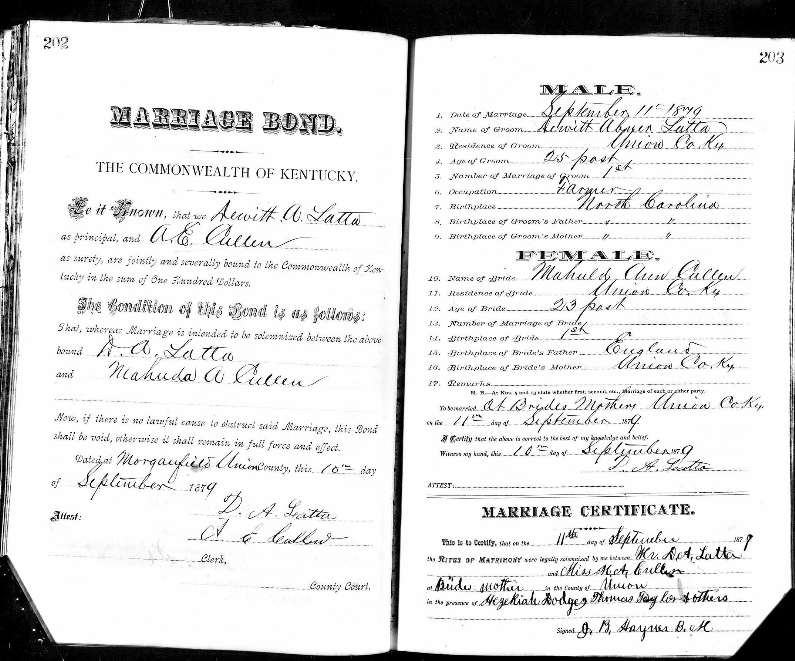 202
MARRIAGE BOND.
THE COMMONWEALTH OF KENTUCKY.
Be it Known, that we Dewitt A. Latta
as principal, and A. E. Cullen
as surety, are jointly and severally bound to the Commonwealth of Ken-
tucky in the sum of One Hundred Dollars.
The Condition of this Bond is as follows:
That, whereas Marriage is intended to be solemnized between the above
bound D. A. Latta
and Mahulda A Cullen
Now, if there is no lawful cause to obstruct said Marriage, this Bond
shall be void, otherwise it shall remain in full force and effect.
Dated at Morganfield Union County, this 10th day
of September 1879
D. A. Latta
A. E. Cullen
Attest:
Clerk,
County Court.
203
MALE.
1. Date of Marriage September 11th 1879
2. Name of Groom Dewitt Abner Latta
3. Residence of Groom Union Co. Ky
4. Age of Groom 25 past
5. Number of Marriage of Groom 1st
6. Occupation Farmer
7. Birthplace North Carolina
8. Birthplace of Groom's Father " "
9. Birthplace of Groom's Mother " "
FEMALE.
10. Name of Bride Mahulda Ann Cullen
11. Residence of Bride Union Co. Ky
12. Age of Bride 23 past
13. Number of Marriage of Bride 1st
14. Birthplace of Bride
15. Birthplace of Bride's Father England
16. Birthplace of Bride's Mother Union Co. Ky
17. Remarks
N. B.—At Nos. 5 and 13 state whether first, second, etc., Marriage of each or either party.
To be married At Brides Mothers Union Co Ky
on the 11th day of September 1879
I Certify that the above is correct to the best of my knowledge and belief.
Witness my hand, this 10th day of September 1879
D. A. Latta
ATTEST:
MARRIAGE CERTIFICATE.
This is to Certify, that on the 11th day of September 1879
the RITES OF MATRIMONY were legally solemnized by me between Mr. D. A. Latta
and Miss M. A. Cullen
at Bride mother in the County of Union
in the presence of Hezekiah Hodges Thomas Taylor & others
Signed, J. B. Haynes B. M